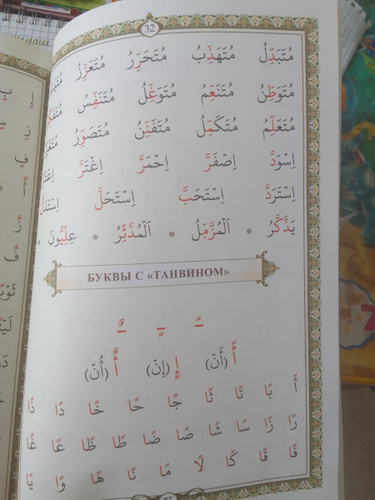 32
مُتَبَدِّلٌ مُتَهَذِّبٌ مُتَحَرِّرٌ مُتَعَزِّزٌ
مُتَوَطِّنٌ مُتَنَعِّمٌ مُتَوَغِّلٌ مُتَنَفِّسٌ
مُتَعَلِّمٌ مُتَكَمِّلٌ مُتَفَنِّنٌ مُتَصَوِّرٌ
اِسْوَدَّ اِصْفَرَّ اِحْمَرَّ اِغْتَرَّ
اِسْتَرَدَّ اِسْتَحَبَّ اِسْتَحَلَّ
يَذَّكَّرُ • اَلْمُزَّمِّلُ • اَلْمُدَّثِّرُ • عِلِّيُّونَ
БУКВЫ С «ТАНВИНОМ»
ـً ـٍ ـٌ
أً (أَنْ) إٍ (إِنْ) أٌ (أُنْ)
أً بًا تًا ثًا جًا حًا خًا دًا ذًا
رًا زًا سًا شًا صًا ضًا طًا ظًا عًا غًا
فًا قًا كًا لًا مًا نًا هًا وًا يًا